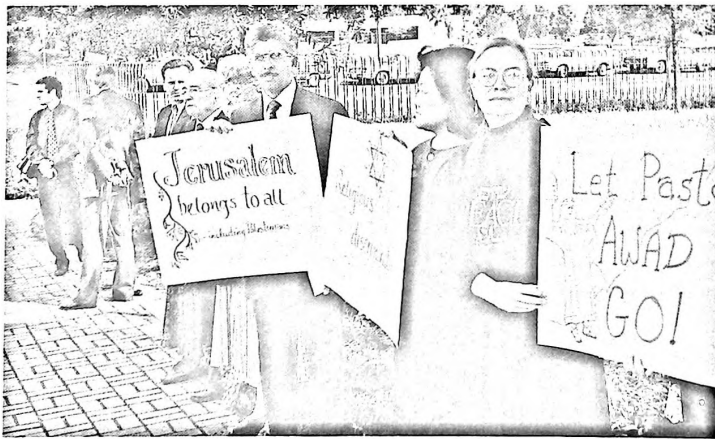 Jerusalem
belongs to all
including
Religious
Let Pasto
AWAD
GO!